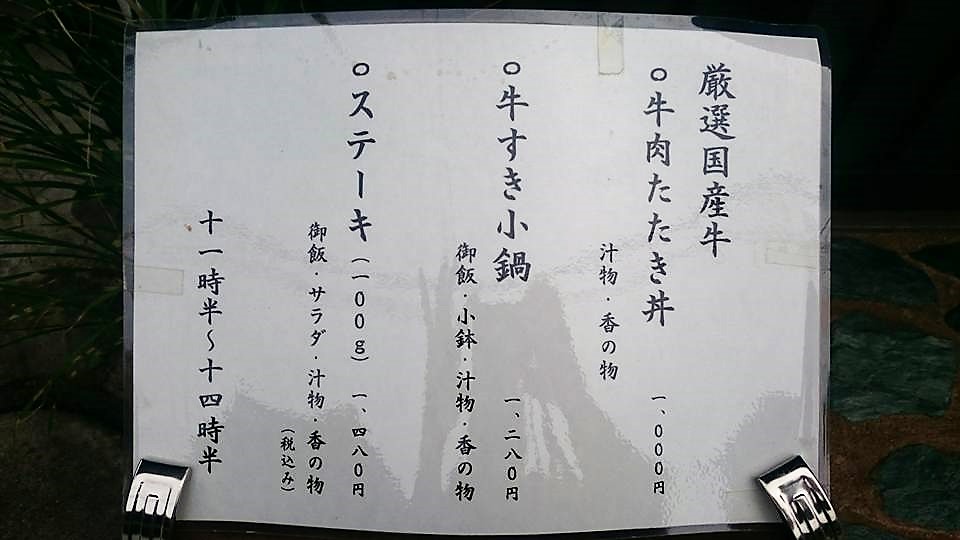 厳選国産牛
○牛肉たたき丼 一、000円
汁物・香の物
○牛すき小鍋 一、二八0円
御飯・小鉢・汁物・香の物
○ステーキ（一00g） 一、四八0円
御飯・サラダ・汁物・香の物
（税込み）
十一時半～十四時半